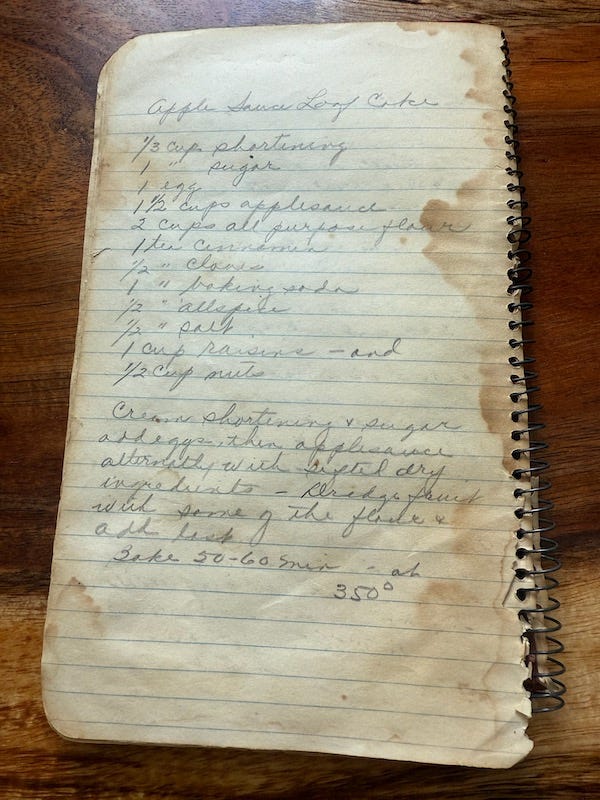 Apple Sauce Loaf Cake
1/3 cup shortening
1 " sugar
1 egg
1 1/2 cups applesauce
2 cups all purpose flour
1 tea cinnamon
1/2 " cloves
1 " baking soda
1/2 " allspice
1/2 " salt
1 cup raisins - and
1/2 cup nuts
Cream shortening & sugar
add eggs, then applesauce
alternatly with sifted dry
ingredients - Dredge fruit
with some of the flour &
add last
Bake 50-60 min - at
350°